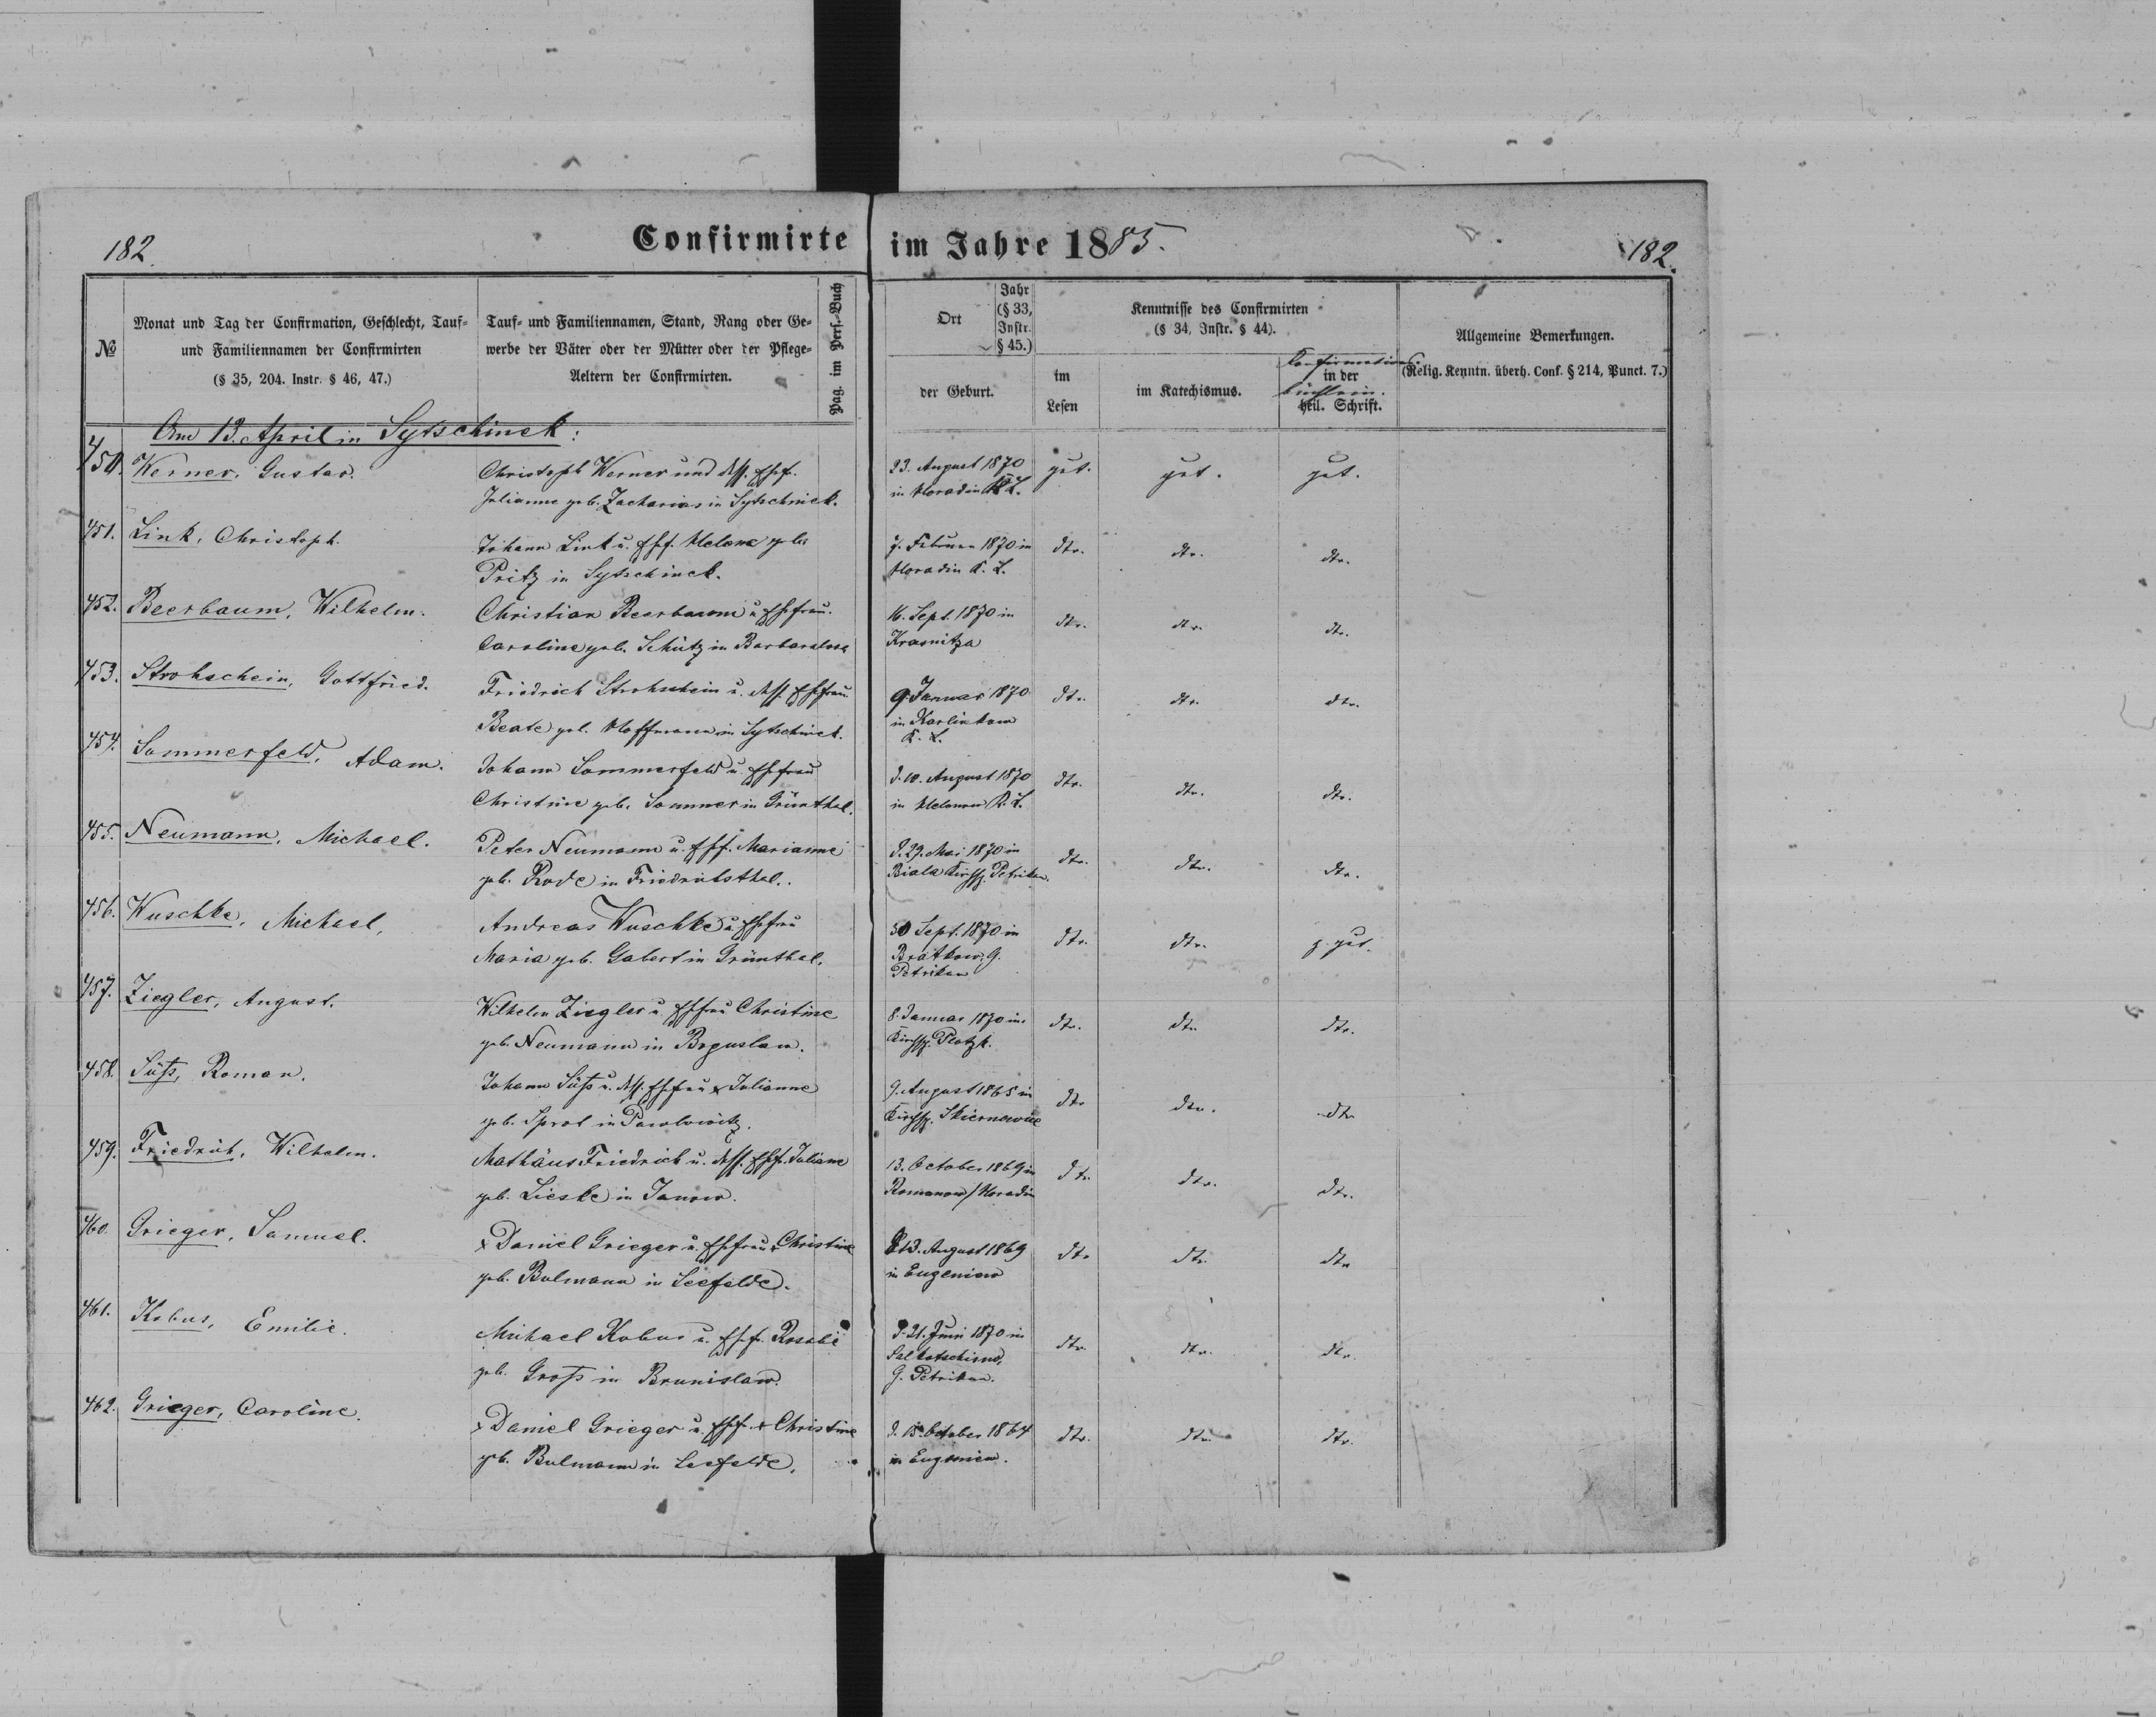 182.
Confirmirte im Jahre 1885.
182.
№
Monat und Tag der Confirmation, Geschlecht, Tauf-
und Familiennamen der Confirmirten
(§ 35, 204. Instr. § 46, 47.)
Tauf- und Familiennamen, Stand, Rang oder Ge-
werbe der Väter oder der Mütter oder der Pflege-
Aeltern der Confirmirten.
Pag. im Pers.-Buch
Ort
Jahr
(§ 33,
Instr.
§ 45.)
der Geburt.
Kenntnisse des Confirmirten
(§ 34, Instr. § 44).
im
Lesen
im Katechismus.
Confirmations
in der
büchlein.
heil. Schrift.
Allgemeine Bemerkungen.
(Relig. Kenntn. überh. Conf. § 214, Punct. 7.)
Am 13. April in Sytschinek:
450. Werner, Gustav.
Christoph Werner und dess. Ehef.
Julianne geb. Zacharias in Sytschinek.
23. August 1870
in Horadin K. L.
gut. gut. gut.
451. Link, Christoph.
Johann Link u. Ehef. Helene geb.
Pritz in Sytschinek.
7. Februar 1870 in
Horadin K. L.
dto. dto. dto.
452. Beerbaum, Wilhelm.
Christian Beerbaum u. Ehefrau
Caroline geb. Schütz in
16. Sept. 1870 in
Krasnitza
dto. dto. dto.
453. Strohschein, Gottfried.
Friedrich Strohschein u. dess. Ehefrau
Beate geb. Hoffmann in Sytschinek.
9. Januar 1870
in Karlinkow
K. L.
dto. dto. dto.
454. Sommerfeld, Adam.
Johann Sommerfeld u. Ehefrau
Christine geb. Sommer in Grünthal.
d. 10. August 1870
in Helenow K. L.
dto. dto. dto.
455. Neumann, Michael.
Peter Neumann u. Ehf. Marianne
geb. Rode in Friedrichsthal.
d. 29. Mai 1870 in
Biala Kirchsp. Petrikau.
dto. dto. dto.
456. Wuschke, Michael,
Andreas Wuschke u. Ehefrau
Maria geb. Gabert in Grünthal.
30 Sept. 1870 in
Bratkow, G.
Petrikau
dto. dto. z. gut.
457. Ziegler, August.
Wilhelm Ziegler u. Ehefrau Christine
geb. Neumann in Boguslaw.
8. Januar 1870 im
Kirchsp. Plotzk.
dto. dto. dto.
458. Süß, Roman.
Johann Süß u. dess. Ehefrau Julianne
geb. in Pawlowitz.
9. August 1865 in
Kirchsp. Skiernewice
dto. dto. dto.
459. Friedrich, Wilhelm.
Mathäus Friedrich u. dess. Ehef. Juliane
geb. Lieske in Janow.
13. October 1869 in
Romanow/Horadin
dto. dto. dto.
460. Grieger, Samuel.
Daniel Grieger u. Ehefrau Christine
geb. Bulmann in Seefelde.
13. August 1869
in Eugeniow
dto. dto. dto.
461. Kobus, Emilie.
Michael Kobus u. Ehef. Rosalie
geb. Groß in Brunislaw.
d. 21. Juni 1870 in
G. Petrikau.
dto. dto. dto.
462. Grieger, Caroline.
Daniel Grieger u. Ehef. Christine
geb. Bulmann in Seefelde.
d. 15. October 1864
in Eugeniow.
dto. dto. dto.